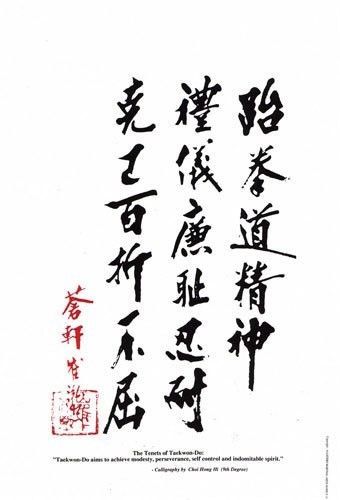 跆拳道精神
禮儀廉耻忍耐
克己百折不屈
蒼軒崔
The Tenets of Taekwon-Do:
"Taekwon-Do aims to achieve modesty, perseverance, self control and indomitable spirit."
- Calligraphy by Choi Hong Hi (9th Degree)